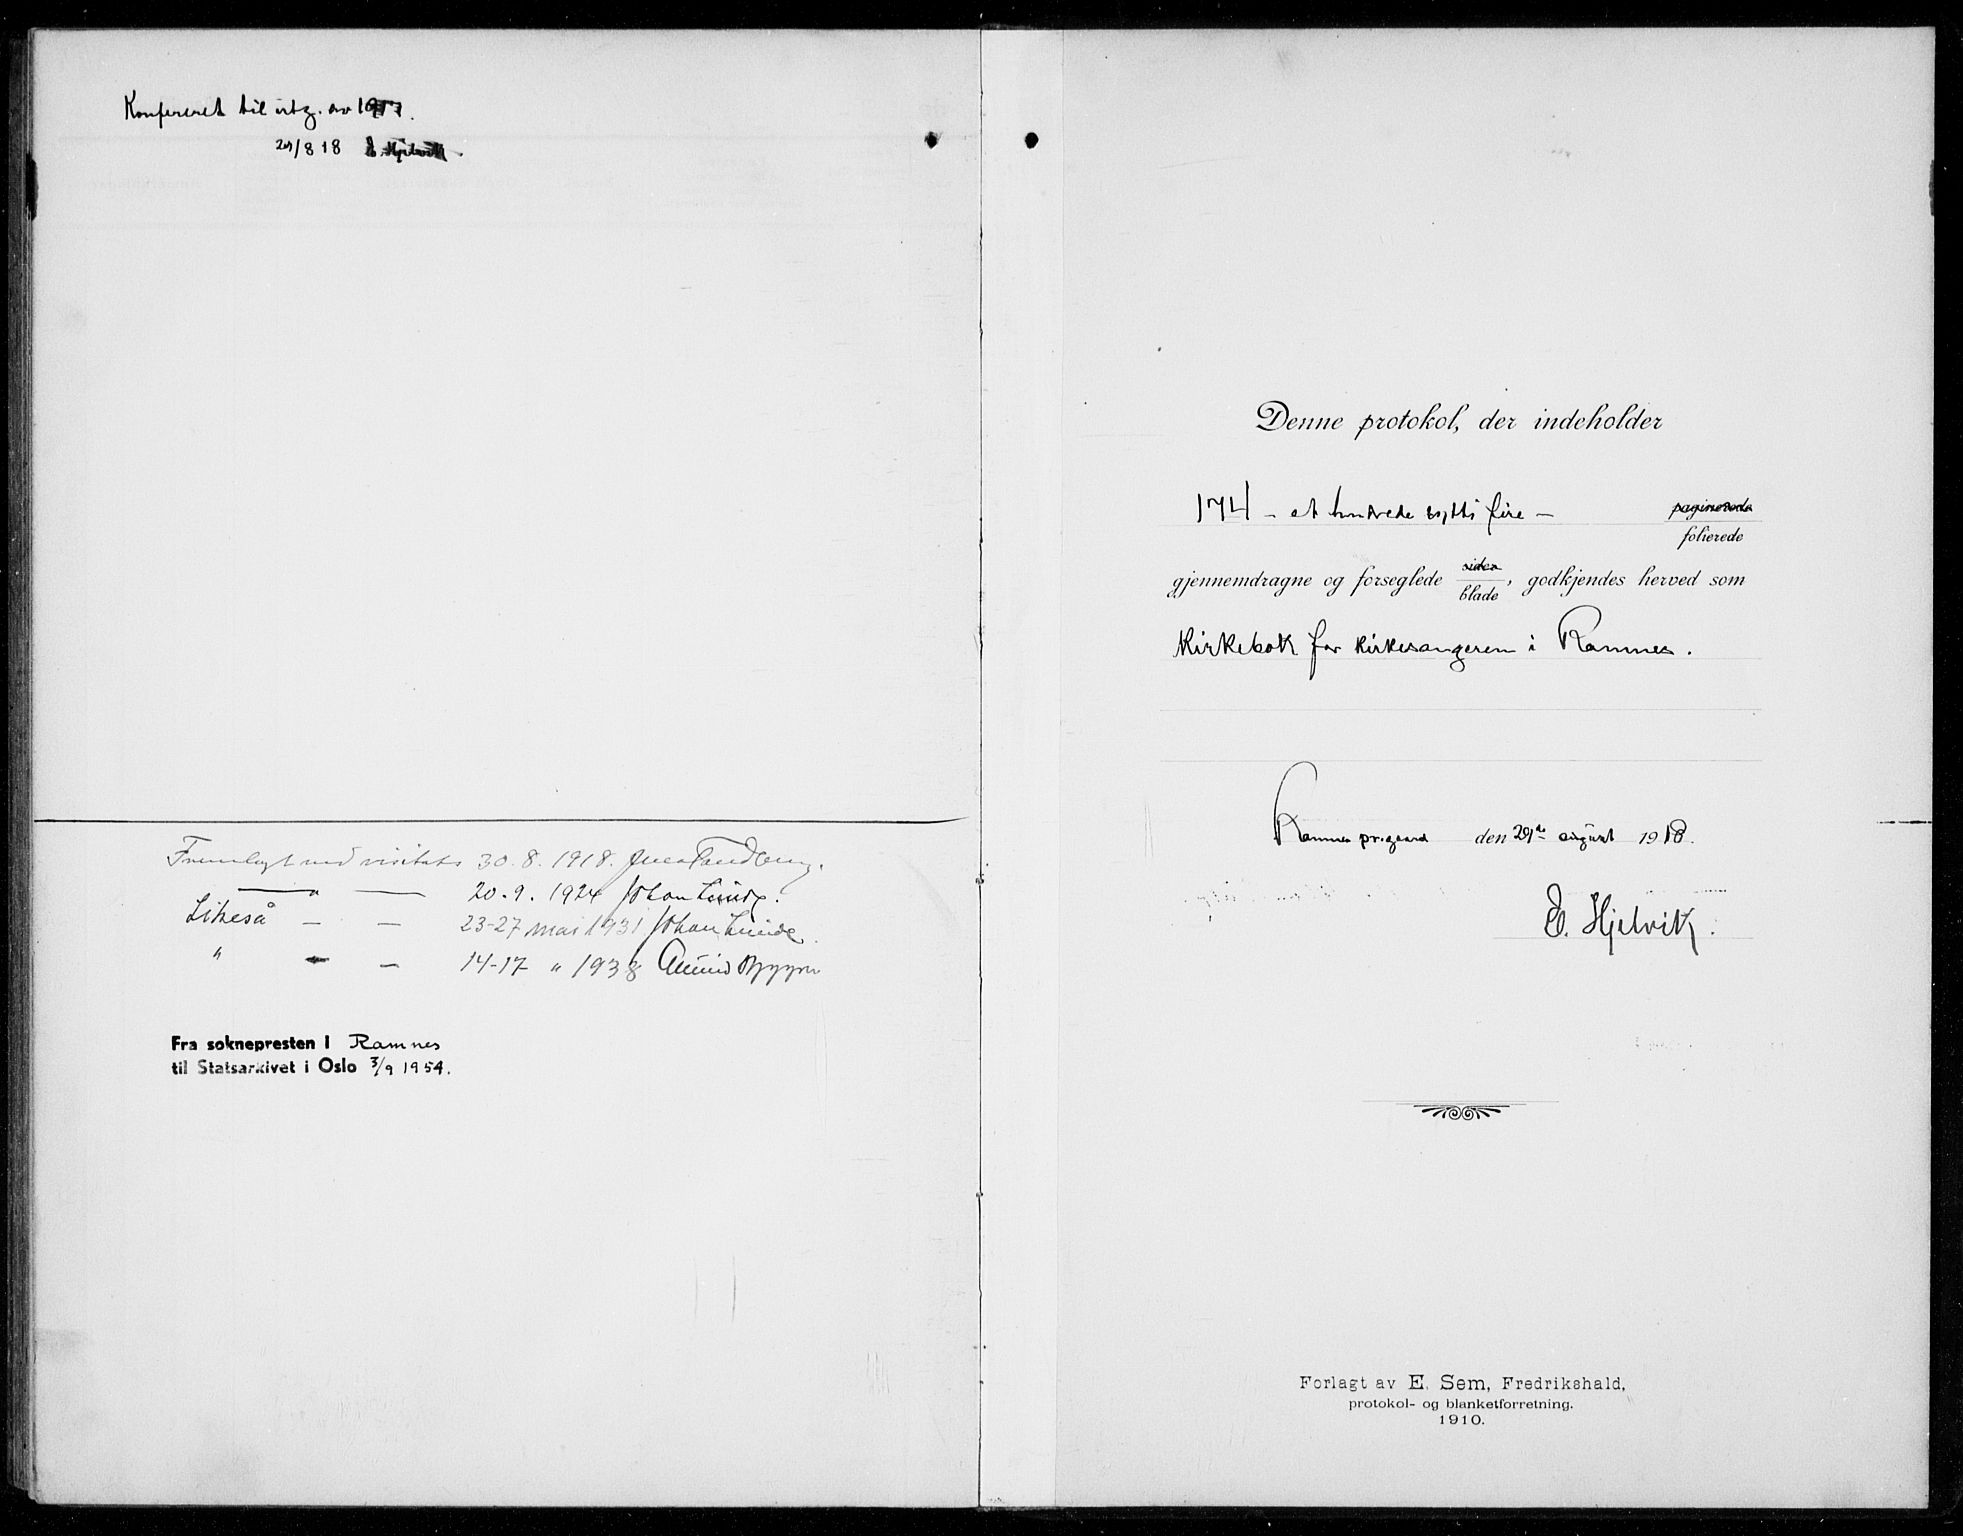 Konfereret til utg. av 1917.
29/8 18 E. Hjelvik.
Fremlagt ved visitats 30. 8. 1918. Jens Tandberg.
— " — 20. 9. 1924 Johan Lunde.
Likeså — — 23-27 mai 1931 Johan Lunde.
" — — 14-17 " 1938
Fra soknepresten i Ramnes
til Statsarkivet i Oslo 3/9 1954.
Denne protokol, der indeholder
174 - et hundrede sytti fire - paginerede
folierede
gjennemdragne og forseglede sider
blade, godkjendes herved som
Kirkebok for kirkesangeren i Ramnes.
Ramnes prgaard den 29de august 1918.
E. Hjelvik.
Forlagt av E. Sem, Fredrikshald,
protokol- og blanketforretning.
1910.